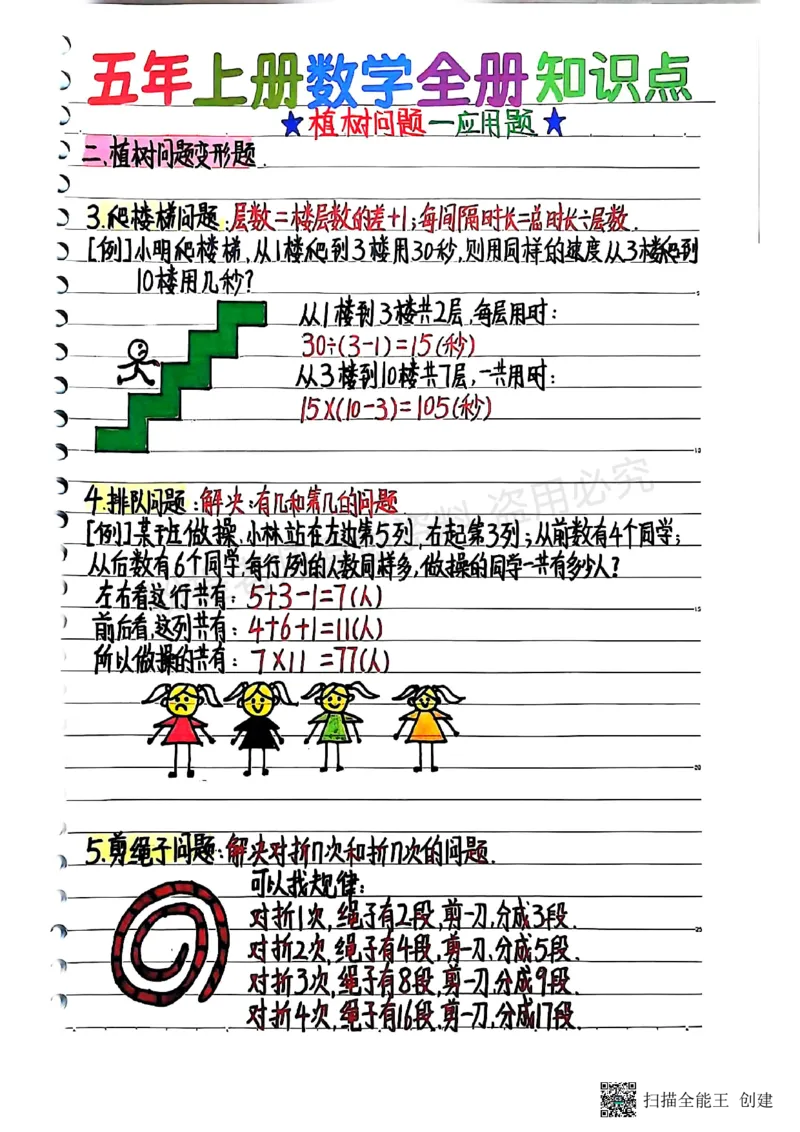 五年上册数学全册知识点
★植树问题—应用题★
二、植树问题变形题.
3.爬楼梯问题:层数=楼层数的差+1;每间隔时长=总时长÷层数.
[例]小明爬楼梯,从1楼爬到3楼用30秒,则用同样的速度从3楼爬到
10楼用几秒?
从1楼到3楼共2层,每层用时:
30÷(3-1)=15(秒)
从3楼到10楼共7层,一共用时:
15×(10-3)=105(秒)
4.排队问题:解决:有几和第几的问题
[例]某班做操,小林站在左边第5列,右起第3列;从前数有4个同学;
从后数有6个同学,每行/列的人数同样多,做操的同学一共有多少人?
左右看这行共有:5+3-1=7(人)
前后看,这列共有:4+6+1=11(人)
所以做操的共有:7×11=77(人)
5.剪绳子问题:解决对折几次和折几次的问题.
可以找规律:
对折1次,绳子有2段,剪一刀,分成3段.
对折2次,绳子有4段,剪一刀,分成5段.
对折3次,绳子有8段,剪一刀,分成9段.
对折4次,绳子有16段,剪一刀,分成17段.
盗用必究
扫描全能王 创建